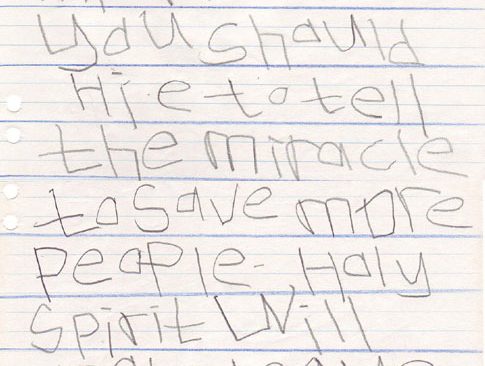 you should
to tell
the miracle
to save more
people. Holy
Spirit Will